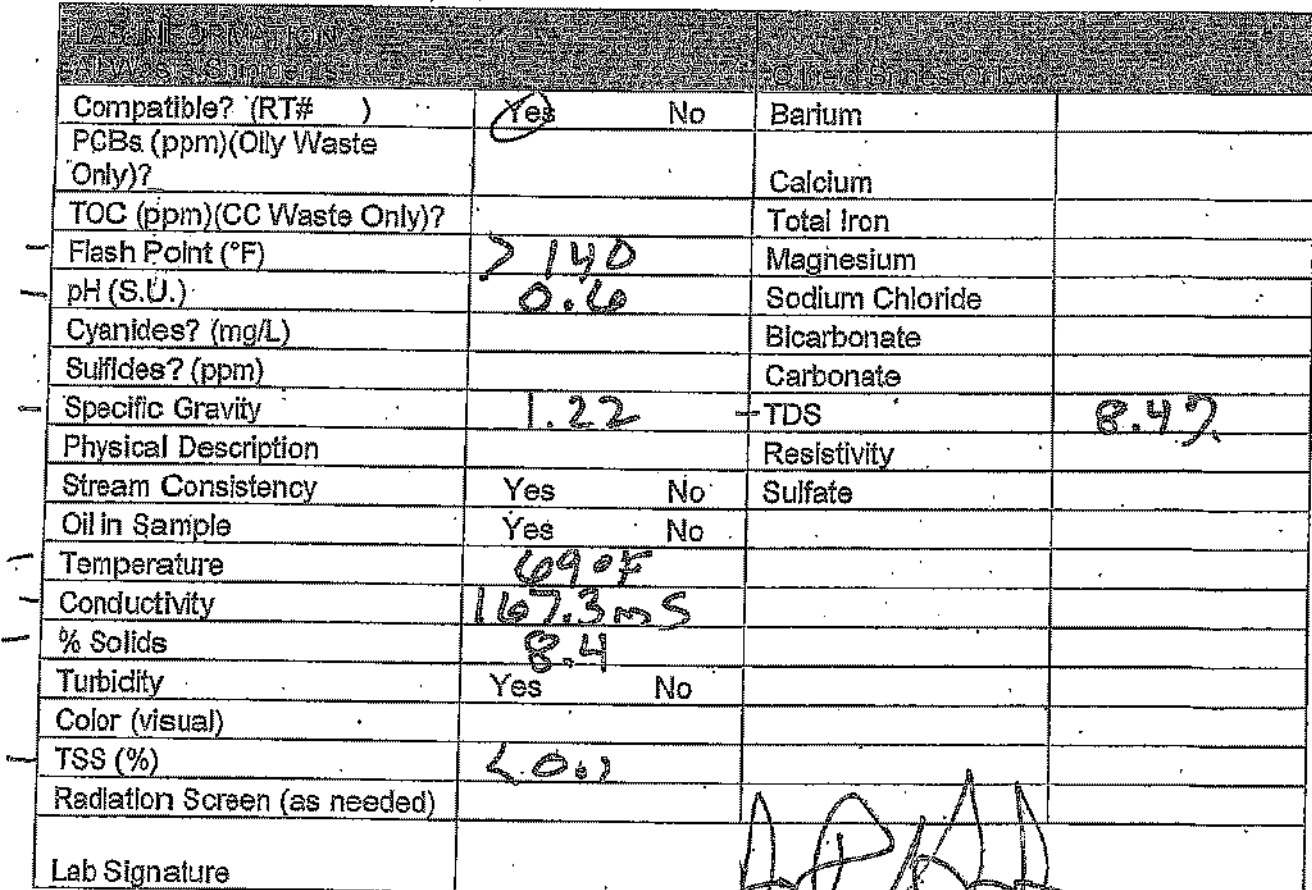 LAB INFORMATION
All Waste Shipments Oilfield Brines Only
Compatible? (RT# ) Yes No Barium
PCBs (ppm)(Oily Waste
Only)? Calcium
TOC (ppm)(CC Waste Only)? Total Iron
Flash Point (°F) > 140 Magnesium
pH (S.U.) 0.6 Sodium Chloride
Cyanides? (mg/L) Bicarbonate
Sulfides? (ppm) Carbonate
Specific Gravity 1.22 TDS 8.4%
Physical Description Resistivity
Stream Consistency Yes No Sulfate
Oil in Sample Yes No
Temperature 69°F
Conductivity 167.3 mS
% Solids 8.4
Turbidity Yes No
Color (visual)
TSS (%) <0.1
Radiation Screen (as needed)
Lab Signature